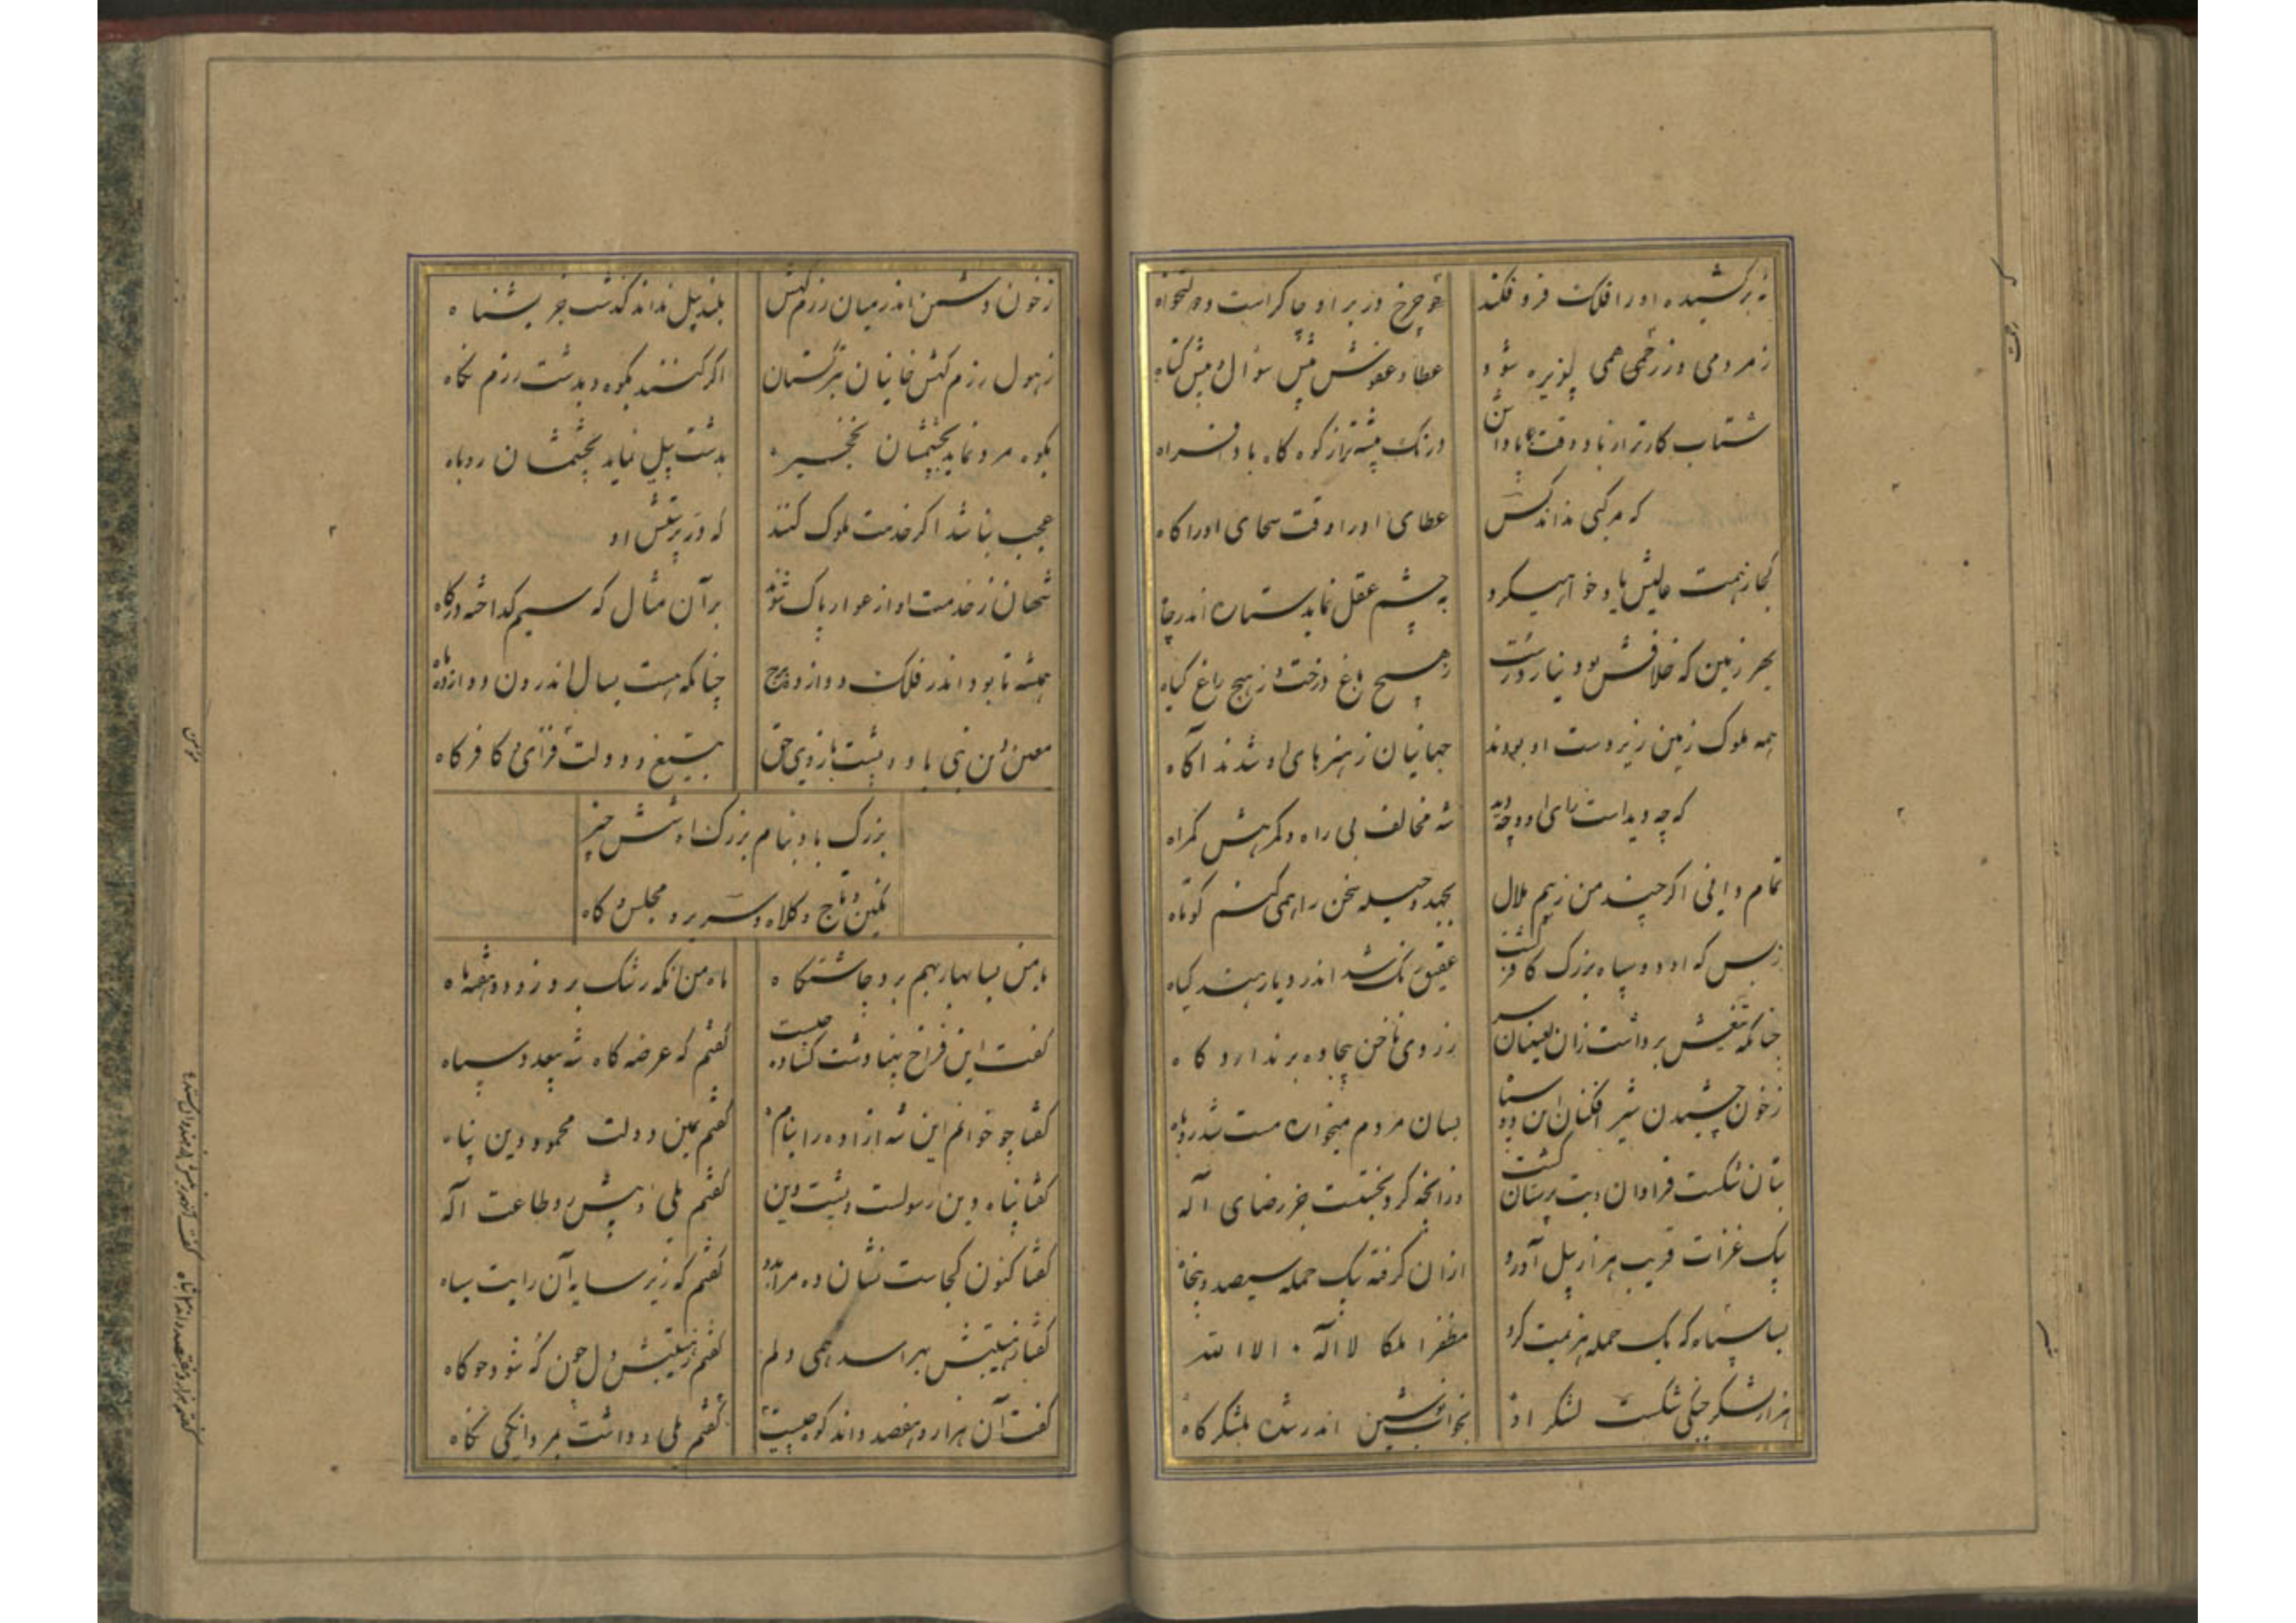 نه برکشیده او را فلک فرو فکند
چو چرخ در بر او چاکر است و دولتخواه
ز مردمی و ز رحمی همی پذیره شود
عطا و عفوش پیش سؤال و پیش کناه
شتاب کارتر از باد وقت پاداشن
درنک پیشه تر از کوه کاه بادفراه
که هرکسی نداند کس
عطای او را وقت سخای او را کاه
کجا ز همت عالیش یاد خواهی کرد
به چشم عقل نماید ستاره اندر چاه
بهر زمین که خلافش بود نیارد رست
ز هیچ باغ درخت و ز هیچ راغ کیاه
همه ملوک زمین زیردست او بودند
جهانیان ز هنرهای او شدند آکاه
که چه دیداست رای او و چه دید
شه مخالف بی راه و کمرهش کمراه
تمام دانی اکر چند من ز بیم ملال
بجهد و حیله سخن را همی کنم کوتاه
ز بس که او دد و سپاه بزرک کافر کشت
عقیق رنک شد اندر دیار هند کیاه
چنانکه تیغش برداشت زان لعینان سر
ز روی ناخن بیجاده برندارد کاه
ز خون چشیدن شیر افکنان این دو سپاه
بسان مردم میخواره مست شد روباه
بتان شکست فراوان و بت پرستان کشت
وز آنچه کرد نجستست جز رضای اله
بیک غزات قریب هزار پیل آورد
از آن کرفته بیک حمله سیصد و پنجاه
بسا سپاه که بیک حمله هزیمت کرد
مظفرا ملکا لا اله الا الله
هزار لشکر جنکی شکست لشکر او
نخوانده نوشین اندر شده بلشکرکاه
ز خون دشمن اندر میان رزمکهش
بلند پیل نداند کذشت جز بشناه
ز هول رزم کهش خانیان بترکستان
اکر کنند بکوه و بدشت رزم نکاه
بکوه مرد نماید بچشمشان نخجیر
بدشت پیل نماید بچشمشان روباه
عجب نباشد اکر خدمت ملوک کنند
که در پرستش او
شهان ز خدمت او از عوار پاک شوند
بر آن مثال که سیم کداخته در کاه
همیشه تا بود اندر فلک دوازده برج
چنانکه هست بسال اندرون دوازده ماه
معین دین نبی باد و پشت بازوی حق
بتیغ و دولت فزای بی کافرکاه
بزرک باد بنام بزرک او شش چیز
نکین و تاج و کلاه و سریر و مجلس و کاه
با من بسا بهار بهم برد چاشتکاه
ماه من آنکه رشک برد زو دو هفته ماه
کفت این فراخ پهنا دشت کشاده چیست
کفتم که عرضه کاه شه بیعدد سپاه
کفتا چو خوانم این شه آزاده را بنام
کفتم یمین دولت محمود دین پناه
کفتا پناه دین رسولست و پشت دین
کفتم بلی و پیش رو طاعت اله
کفتا کنون کجاست نشان ده مرا بدو
کفتم که زیر سایه آن رایت سیاه
کفتا ز هیبتش بهراسد همی دلم
کفتم ز هیبتش دل چون که شود چو کاه
کفت آن هزار و هفصد و اند کوه چیست
کفتم بلی و داشت مردانکی نکاه
مومن